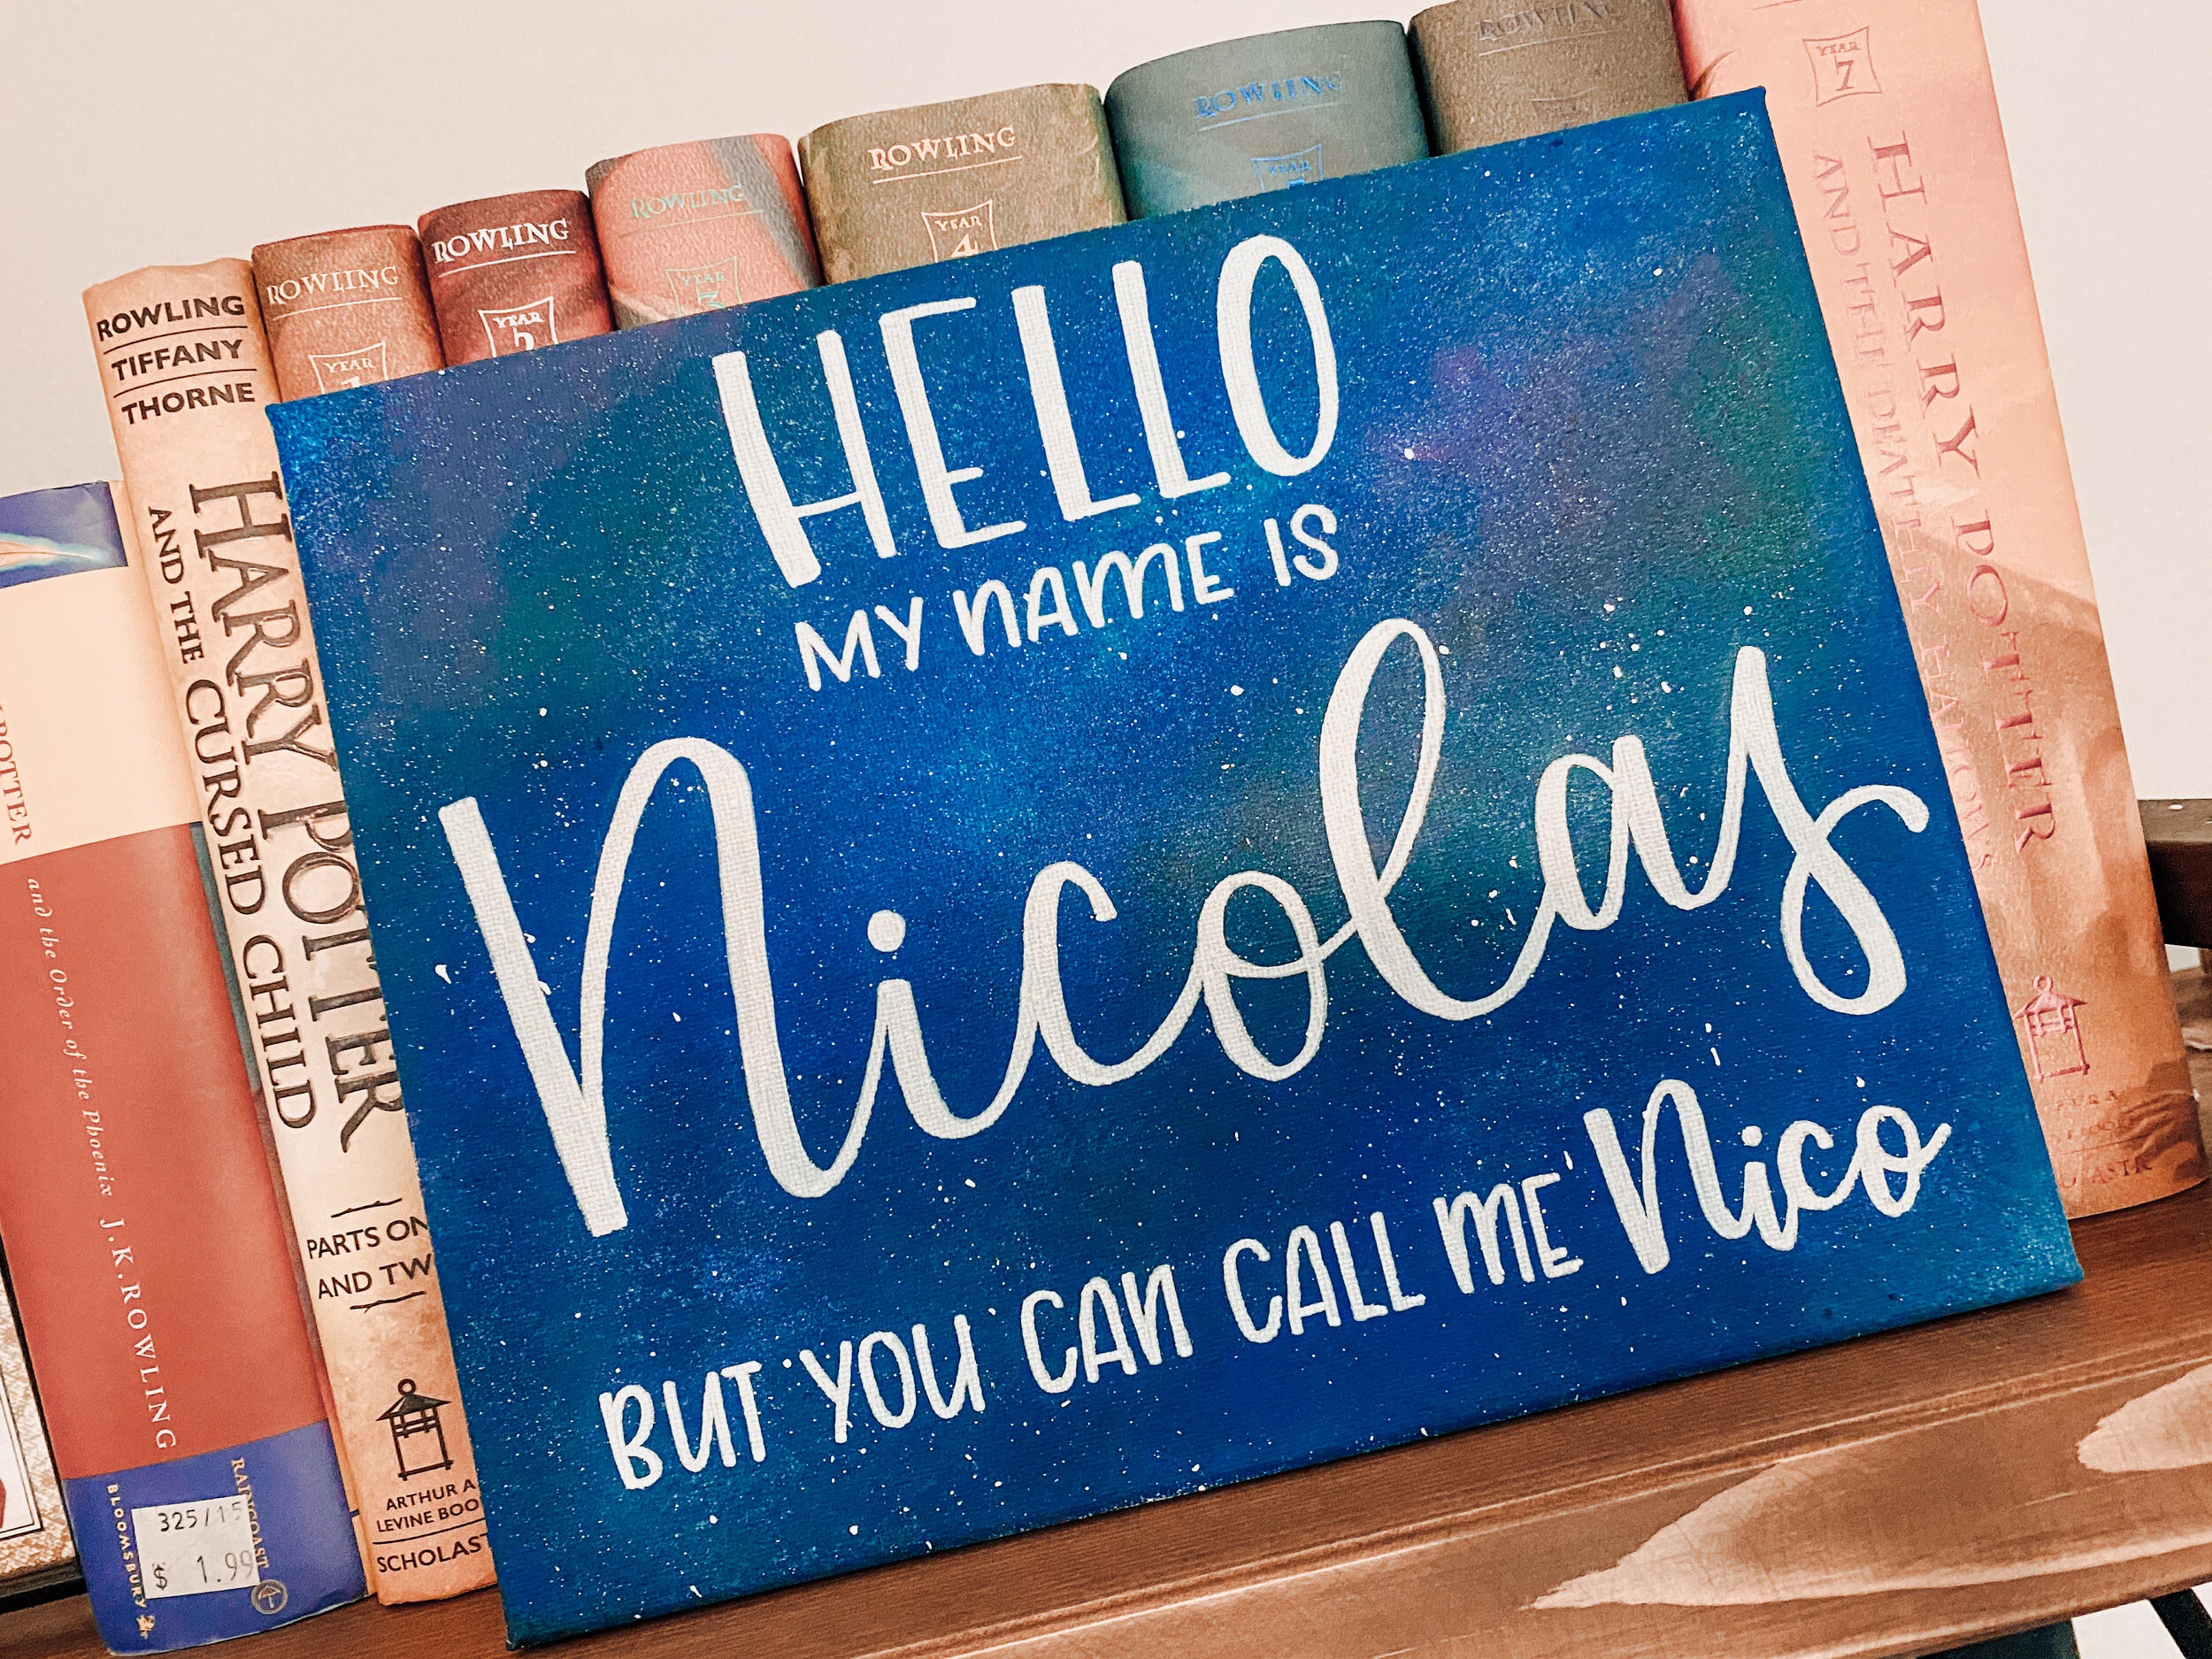 HELLO
MY NAME IS
Nicolas
BUT YOU CAN CALL ME Nico
POTTER
and the Order of the Phoenix J.K.ROWLING
BLOOMSBURY
RAINCOAST
325/15
$ 1.99
ROWLING
TIFFANY
THORNE
HARRY POTTER
AND THE CURSED CHILD
PARTS ON
AND TW
ARTHUR A.
LEVINE BOO
SCHOLAST
ROWLING
YEAR
1
ROWLING
YEAR
5
ROWLING
YEAR
3
ROWLING
YEAR
4
ROWLING
YEAR
ROWLING
YEAR
7
HARRY POTTER
AND THE DEATHLY HALLOWS